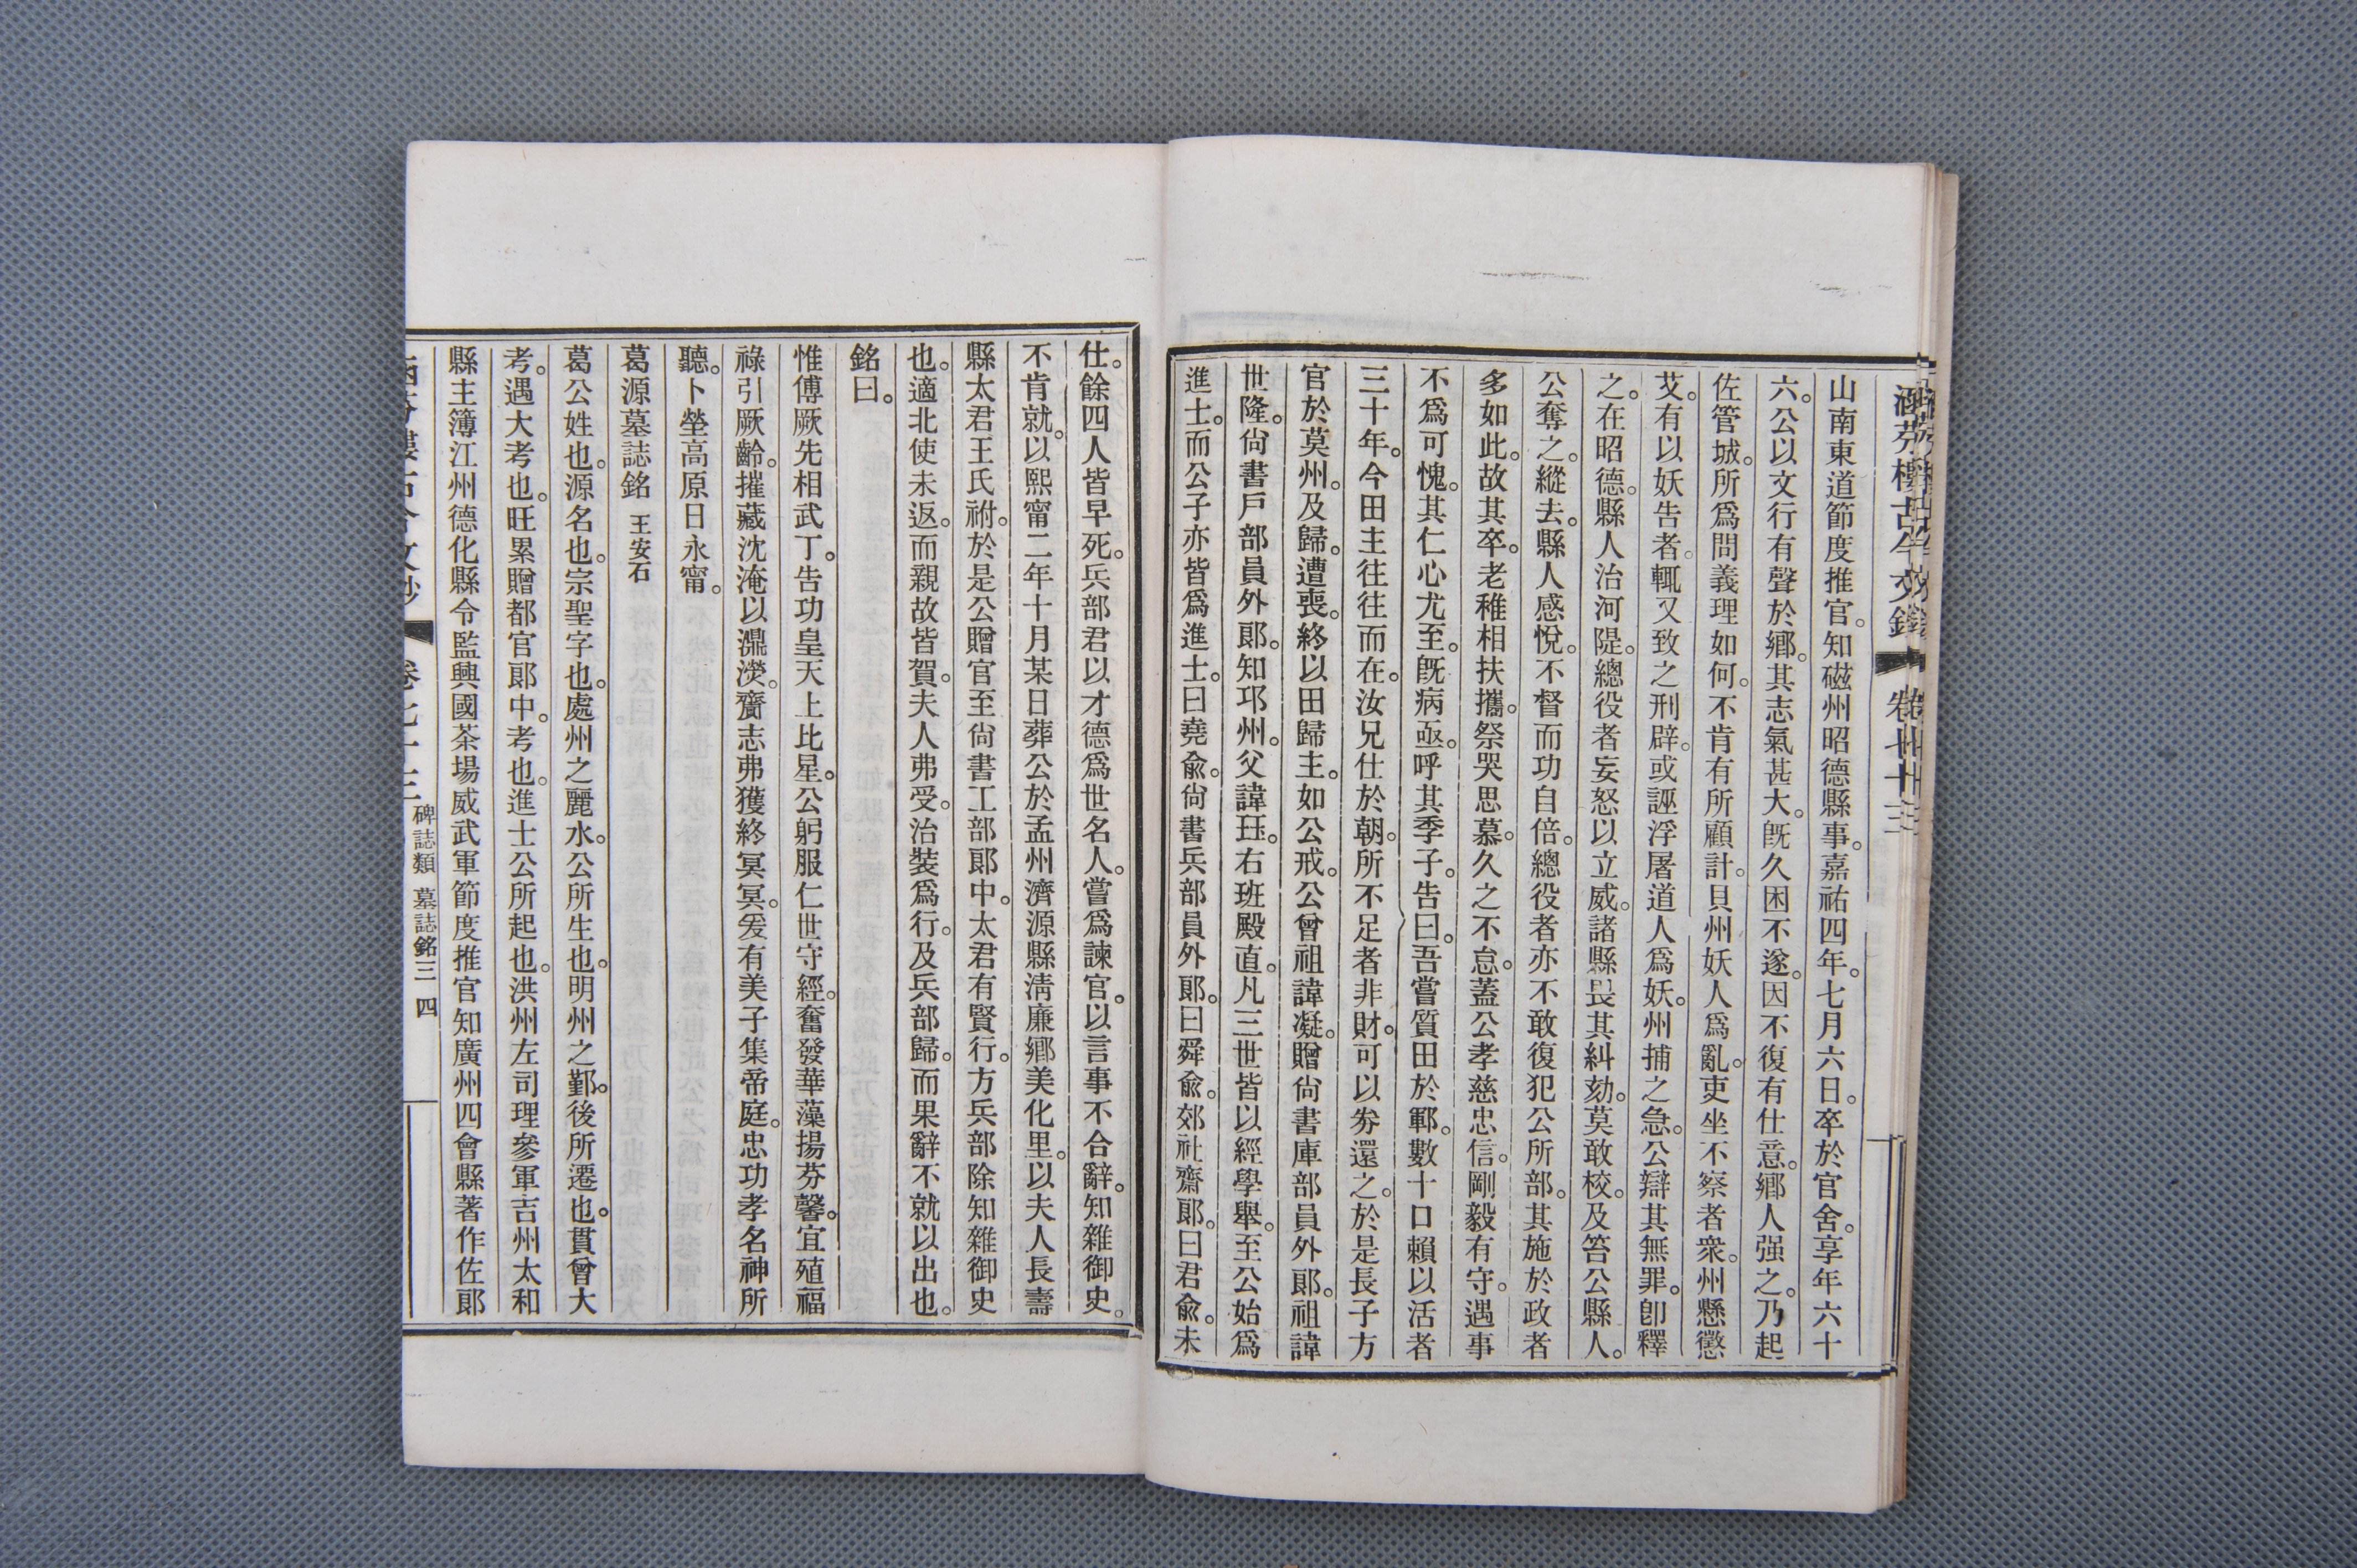 涵芬樓古今文鈔　卷七十三
山南東道節度推官。知磁州昭德縣事。嘉祐四年。七月六日。卒於官舍。享年六十
六。公以文行有聲於鄉。其志氣甚大。既久困不遂。因不復有仕意。鄉人强之。乃起
佐管城。所爲問義理如何。不肯有所顧計。貝州妖人爲亂。吏坐不察者衆。州懸懲
艾。有以妖告者。輒又致之刑辟。或誣浮屠道人爲妖。州捕之急。公辯其無罪。卽釋
之。在昭德。縣人治河隄。總役者妄怒以立威。諸縣畏其糾劾。莫敢校。及笞公縣人。
公奪之。縱去。縣人感悅。不督而功自倍。總役者亦不敢復犯公所部。其施於政者
多如此。故其卒。老稚相扶攜。祭哭思慕。久之不怠。蓋公孝慈忠信。剛毅有守。遇事
不爲可愧。其仁心尤至。旣病亟。呼其季子。告曰。吾嘗質田於鄆。數十口賴以活者
三十年。今田主往往而在。汝兄仕於朝。所不足者非財。可以劵還之。於是長子方
官於莫州。及歸。遭喪。終以田歸主。如公戒。公曾祖諱凝。贈尙書庫部員外郞。祖諱
世隆。尙書戶部員外郞。知邛州。父諱珏。右班殿直。凡三世皆以經學舉。至公始爲
進士。而公子亦皆爲進士。曰堯俞。尙書兵部員外郞。曰舜俞。郊社齋郞。曰君俞。未
仕。餘四人皆早死。兵部君以才德爲世名人。嘗爲諫官。以言事不合辭。知雜御史。
不肯就。以熙甯二年十月某日葬公於孟州濟源縣淸廉鄉美化里。以夫人長壽
縣太君王氏祔。於是公贈官至尙書工部郞中。太君有賢行。方兵部除知雜御史
也。適北使未返。而親故皆賀。夫人弗受。治裝爲行。及兵部歸。而果辭不就以出也。
銘曰。
惟傅厥先相武丁。告功皇天上比星。公躬服仁世守經。奮發華藻揚芬馨。宜殖福
祿引厥齡。摧藏沈淹以濎濴。齎志弗獲終冥冥。爰有美子集帝庭。忠功孝名神所
聽。卜塋高原日永甯。
葛源墓誌銘　王安石
葛公姓也。源名也。宗聖字也。處州之麗水。公所生也。明州之鄞。後所遷也。貫曾大
考。遇大考也。旺累贈都官郞中。考也。進士公所起也。洪州左司理參軍吉州太和
縣主簿江州德化縣令監興國茶場威武軍節度推官知廣州四會縣著作佐郞
涵芬樓古今文鈔　卷七十三　碑誌類　墓誌銘三　四